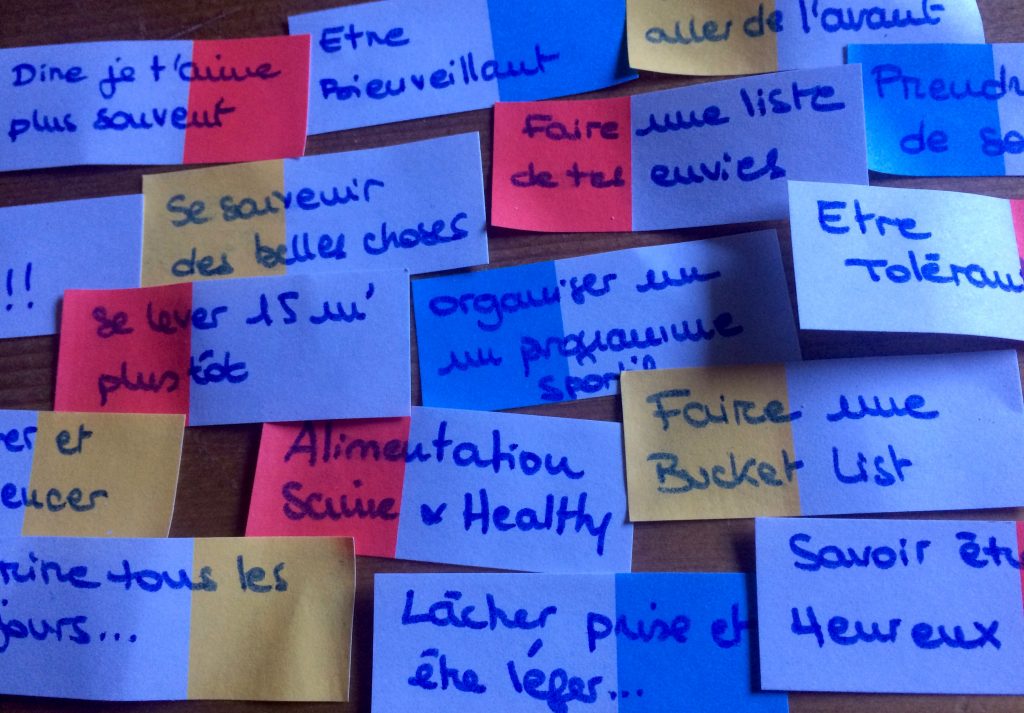 Dire je t'aime
plus souvent
Etre
Bienveillant
aller de l'avant
Prendr
de so
Faire une liste
de tes envies
Se souvenir
des belles choses
Etre
Toléran
!!
Se lever 15 mn'
plus tôt
organiser un
un programme
sportif
Faire une
Bucket List
er et
encer
Alimentation
Saine & Healthy
rire tous les
jours...
Lâcher prise et
être léger...
Savoir êtr
Heureux